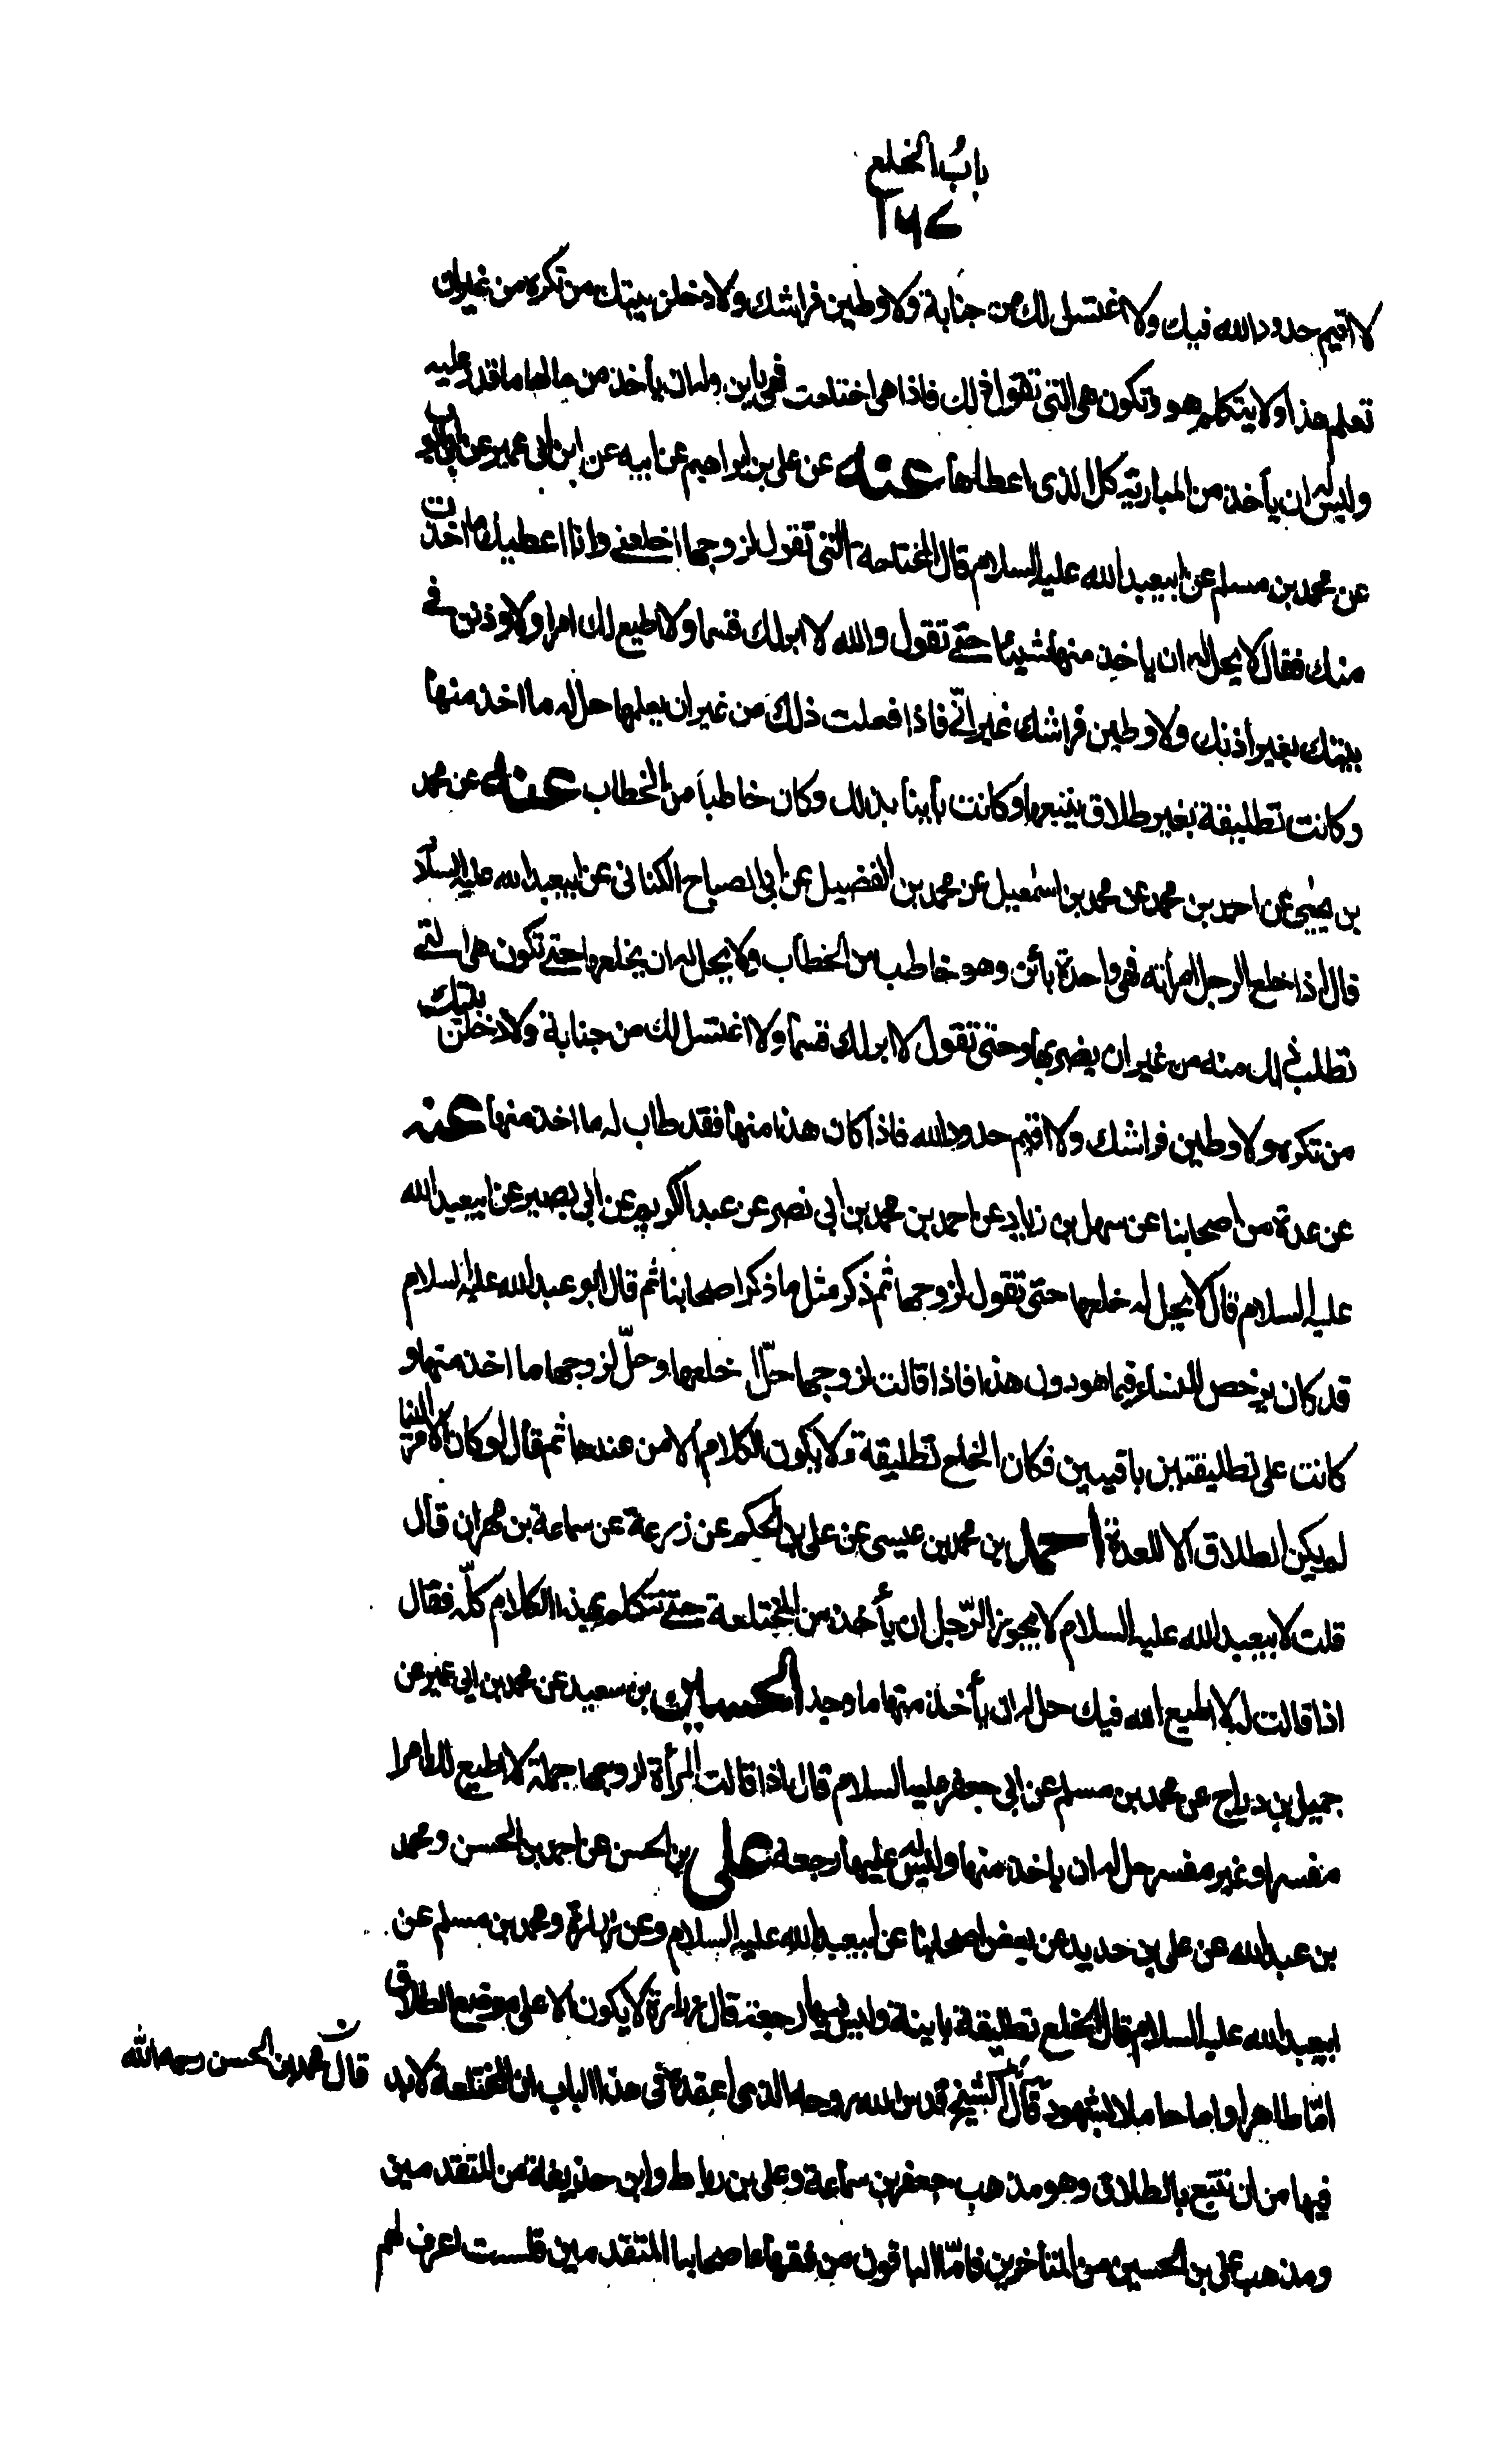 باب الخلع
١٦٧
لا اقيم حدود الله فيك ولا اغتسل لك من جنابة ولاوطين فراشك ولادخلن بيتك من تكره من غير ان
تعلم هذا ولا يتكلم هو وتكون هي التي تقول ذلك فاذا هي اختلعت فهي باين وله ان يأخذ من مالها ما قدر عليه
وليس له ان يأخذ من المبارية كل الذي اعطاها عنه عن علي بن ابراهيم عن ابيه عن ابن ابي عمير عن ابي ايوب
عن محمد بن مسلم عن ابيعبد الله عليه السلام قال المختلعة التي تقول لزوجها اخلعني وانا اعطيك ما اخذت
منك فقال لا يحل له ان ياخذ منها شيئا حتى تقول والله لا ابر لك قسما ولا اطيع لك امرا ولاوذنن في
بيتك بغير اذنك ولاوطين فراشك غيرك فاذا فعلت ذلك من غير ان يعلمها حل له ما اخذ منها
وكانت تطليقة بغير طلاق يتبعها وكانت بأينا بذلك وكان خاطبا من الخطاب عنه عن محمد
بن يحيى عن احمد بن محمد عن محمد بن اسمعيل عن محمد بن الفضيل عن ابي الصباح الكناني عن ابيعبد الله عليه السلام
قال اذا خلع الرجل امرأته فهي واحدة بائن وهو خاطب من الخطاب ولا يحل له ان يخلعها حتى تكون هي التي
تطلب ذلك منه من غير ان يضر بها وحتى تقول لا ابر لك قسما ولا اغتسل لك من جنابة ولادخلن بيتك
من تكره ولاوطين فراشك ولا اقيم حدود الله فاذا كان هذا منها فقد طاب له ما اخذ منها عنه
عن عدة من اصحابنا عن سهل بن زياد عن احمد بن محمد بن ابي نصر عن عبد الكريم عن ابي بصير عن ابيعبد الله
عليه السلام قال لا يحل له خلعها حتى تقول لزوجها ثم ذكر مثل ما ذكر اصحابنا ثم قال ابو عبد الله عليه السلام
قد كان يرخص للنساء فيما هو دون هذا فاذا قالت لزوجها حل خلعها وحل لزوجها ما اخذ منها و
كانت على تطليقتين باقيتين فكان الخلع تطليقة ولا يكون الكلام الا من عندها ثم قال لو كان الامر الينا
لم يكن الطلاق الا للعدة احمد بن محمد بن عيسى عن علي بن الحكم عن زرعة عن سماعة بن مهران قال
قلت لابيعبد الله عليه السلام لا يجوز الرجل ان يأخذ من المختلعة حتى تتكلم بهذا الكلام كله فقال
اذا قالت له لا اطيع الله فيك حل له ان يأخذ منها ما وجد الحسين بن سعيد عن محمد بن ابي عمير عن
جميل بن دراج عن محمد بن مسلم عن ابي جعفر عليه السلام قال اذا قالت المرأة لزوجها جملة لا اطيع لك امرا
مفسرا وغير مفسر حل له ان ياخذ منها وليس له عليها رجعة علي بن الحسن عن احمد بن الحسن ومحمد
بن عبد الله عن علي بن حديد عن بعض اصحابنا عن ابيعبد الله عليه السلام وعن زرارة ومحمد بن مسلم عن
ابيعبد الله عليه السلام قال الخلع تطليقة باينة وليس فيها رجعة قال زرارة لا يكون الا على موضع الطلاق
اما طاهرا واما حاملا بشهود قال الشيخ قدس الله روحه الذي اعتقده في هذا الباب ان المختلعة لا بد
قال محمد بن الحسن رحمه الله
فيها من ان تتبع بالطلاق وهو مذهب جعفر بن سماعة وعلي بن رباط وابن حذيفة من المتقدمين
ومذهب علي بن الحسين من المتأخرين فاما الباقون من فقهاء اصحابنا المتقدمين فلست اعرف لهم